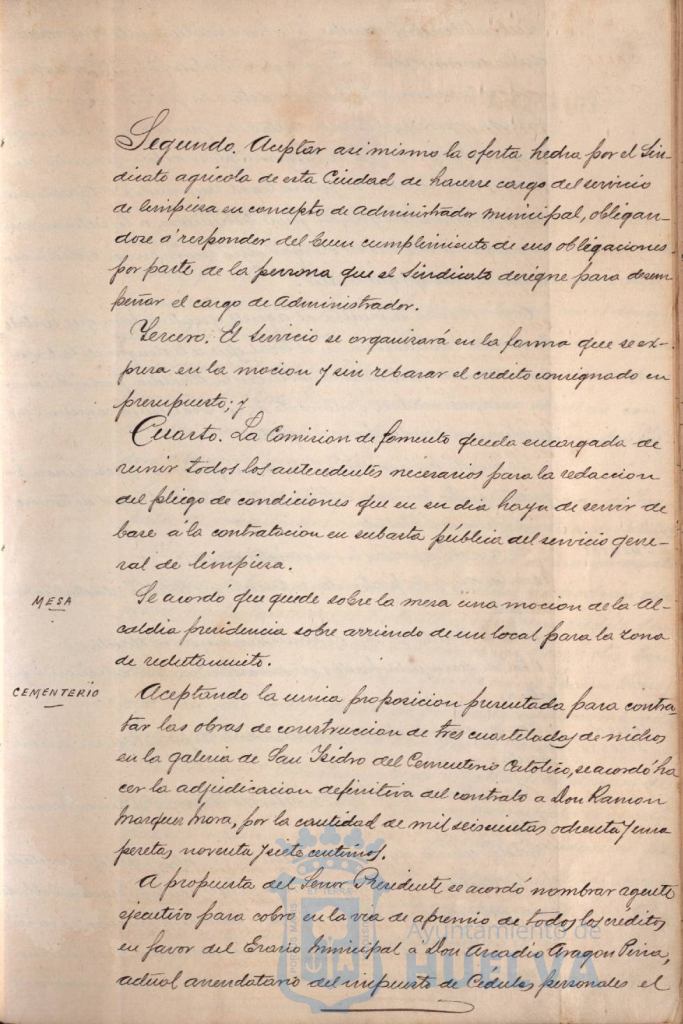 Segundo. Aceptar asi mismo la oferta hecha por el Sin-
dicato agricola de esta Ciudad de hacerse cargo del servicio
de limpieza en concepto de Administrador municipal, obligan-
dose á responder del buen cumplimiento de sus obligaciones
por parte de la persona que el Sindicato designe para desem
peñar el cargo de Administrador.
Tercero. El servicio se organizará en la forma que se ex-
presa en la mocion y sin rebasar el credito consignado en
presupuesto; y
Cuarto. La Comision de fomento queda encargada de
reunir todos los antecedentes necesarios para la redaccion
del pliego de condiciones que en su dia haya de servir de
base á la contratacion en subasta pública del servicio gene-
ral de limpieza.
MESA
Se acordó que quede sobre la mesa una mocion de la Al-
caldia presidencia sobre arriendo de un local para la zona
de reclutamiento.
CEMENTERIO
Aceptando la unica proposicion presentada para contra-
tar las obras de construccion de tres cuartelados de nichos
en la galeria de San Isidro del Cementerio Catolico, se acordó ha
cer la adjudicacion definitiva del contrato a Don Ramon
Marquez Mora, por la cantidad de mil seiscientas ochenta y una
pesetas noventa y siete centimos.
A propuesta del Señor Presidente se acordó nombrar agente
ejecutivo para cobro en la via de apremio de todos los creditos
en favor del Erario Municipal a Don Arcadio Aragon
actual arrendatario del impuesto de Cedulas personales el
Ayuntamiento de
HUELVA